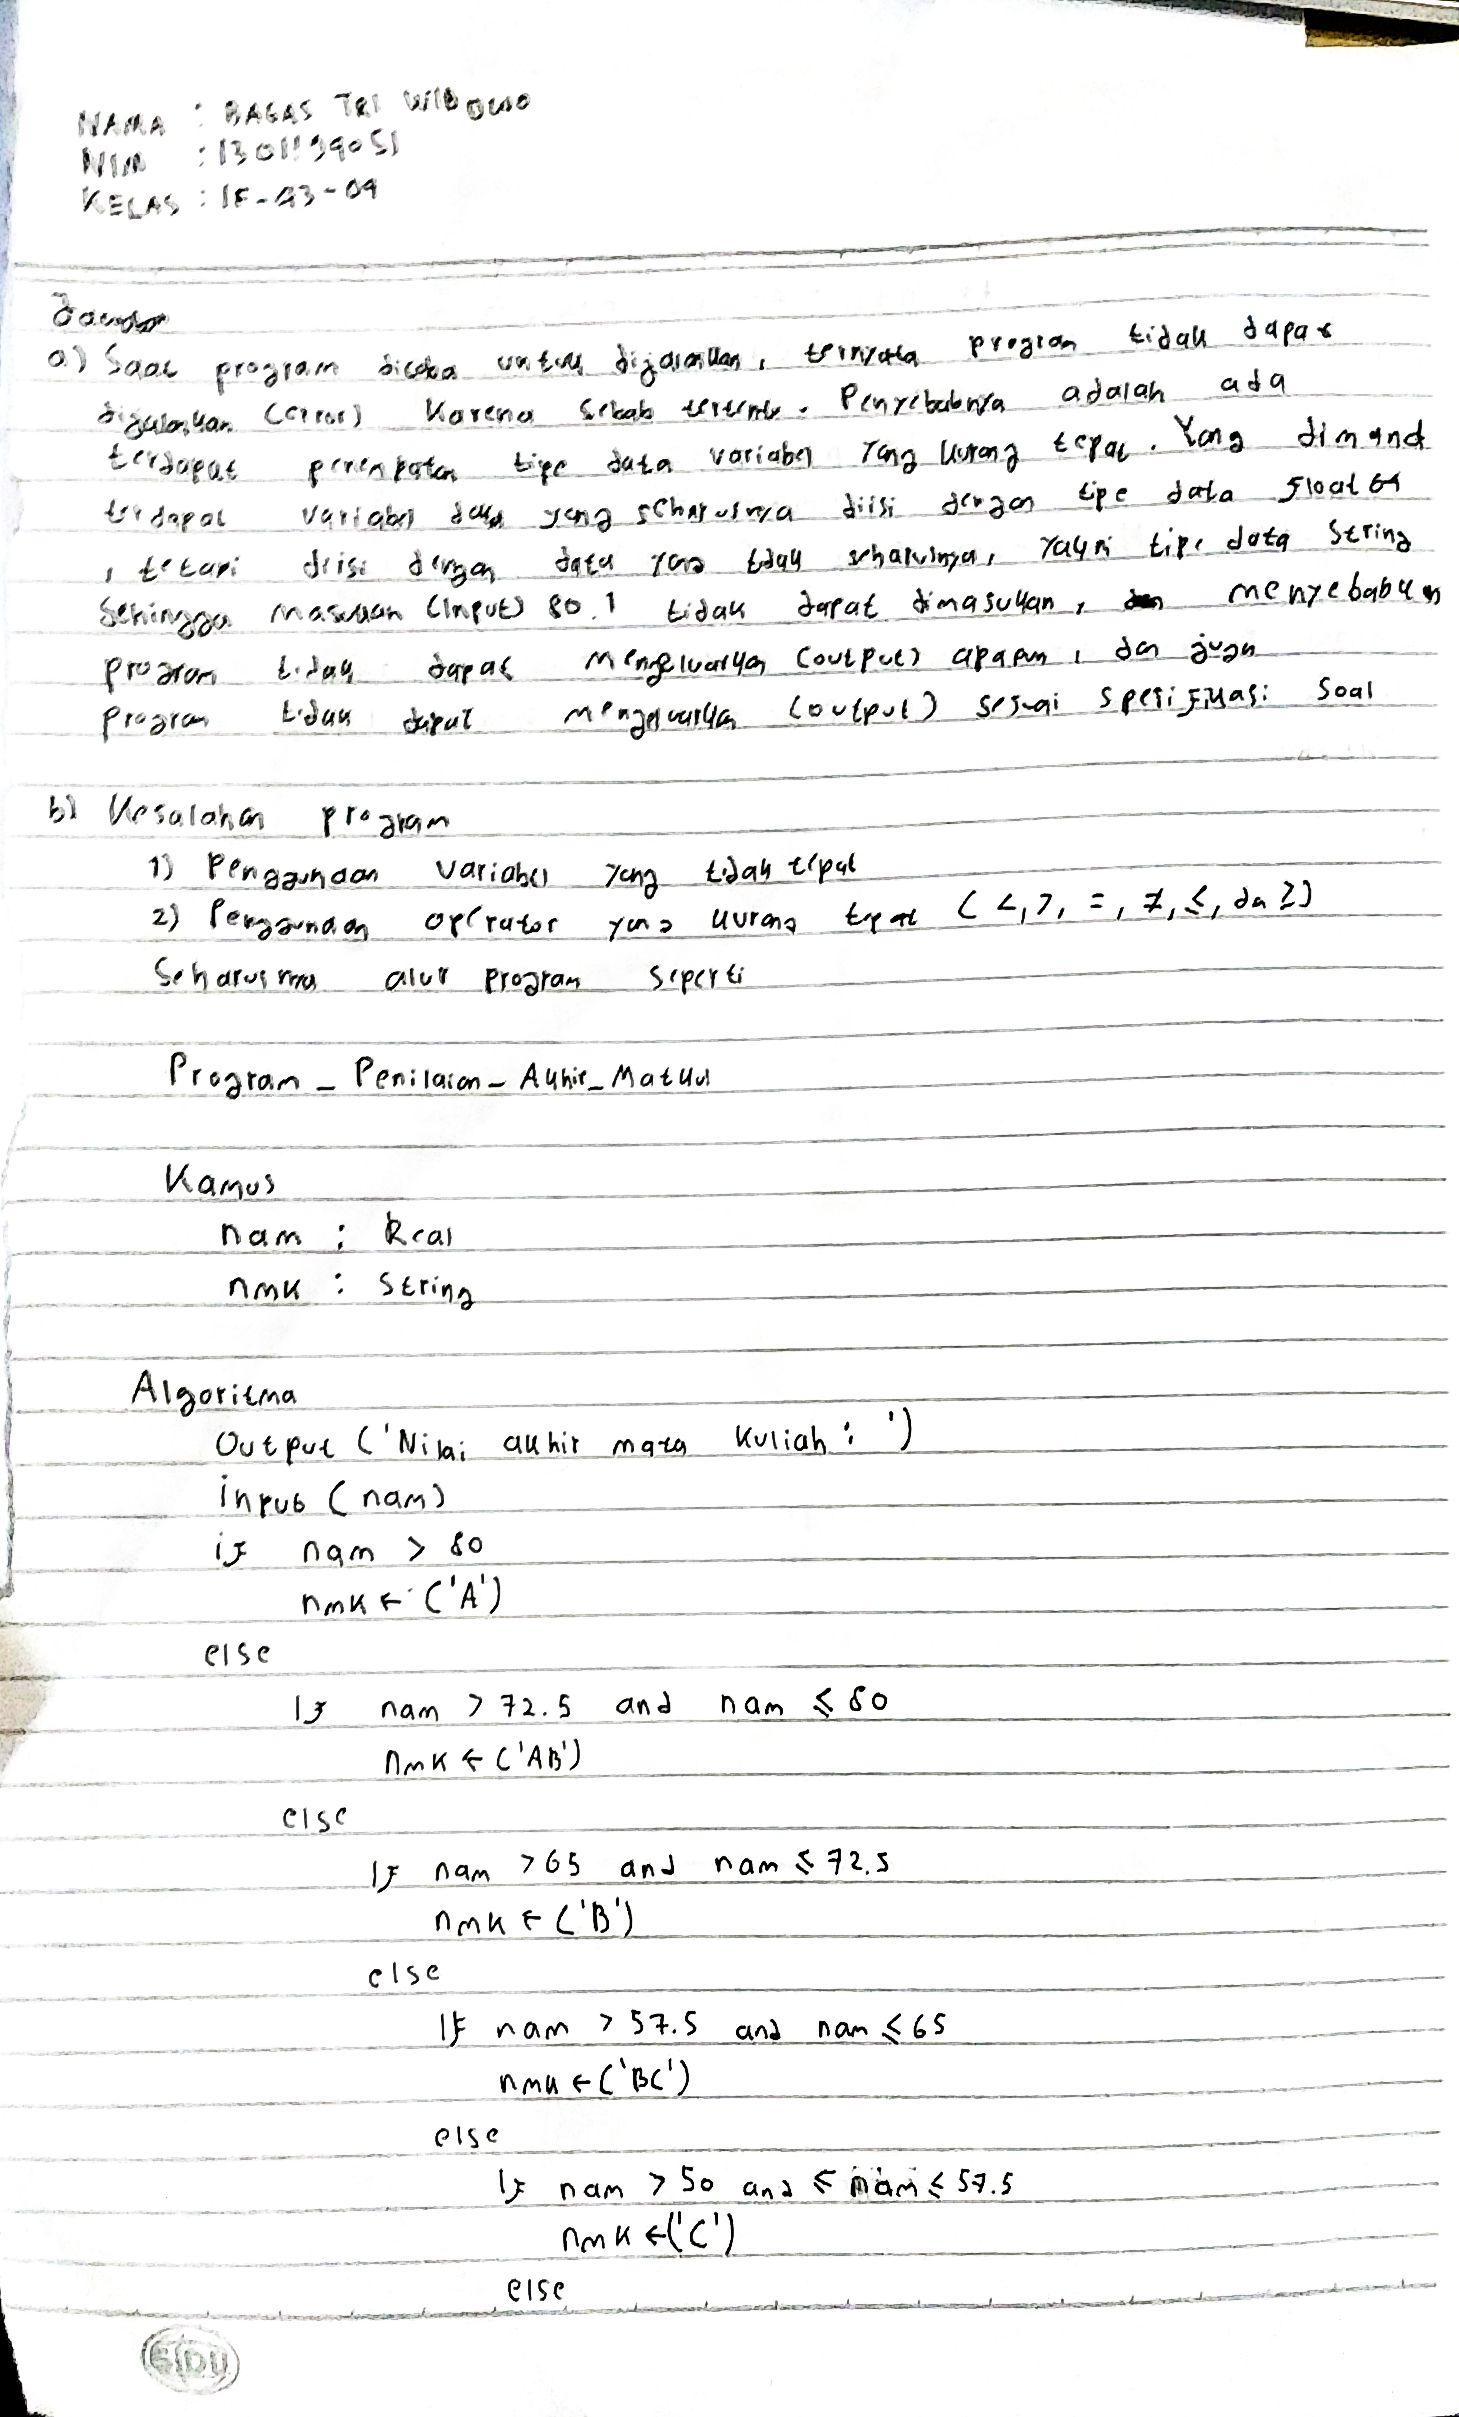 NAMA : BAGAS TRI WIBOWO
NIM : 1301194051
KELAS : IF-43-04
Jawab
a) Saat program dicoba untuk dijalankan, ternyata program tidak dapat
dijalankan (error) karena sebab tertentu. Penyebabnya adalah ada
terdapat penempatan tipe data variabel yang kurang tepat. Yang dimana
terdapat variabel data yang seharusnya diisi dengan tipe data float 64
, tetapi diisi dengan data yang tidak seharusnya, yakni tipe data String
Sehingga masukan (Input) 80.1 tidak dapat dimasukkan, menyebabkan
program tidak dapat mengeluarkan (output) apapun, dan juga
program tidak dapat mengeluarkan (output) sesuai spesifikasi soal
b) Kesalahan program
1) Penggunaan variabel yang tidak tepat
2) Penggunaan operator yang kurang tepat ( <, >, =, ≠, ≤, da ≥)
Seharusnya alur program seperti
Program_Penilaian_Akhir_Matkul
Kamus
nam : Real
nmk : String
Algoritma
Output ('Nilai akhir mata kuliah : ')
input (nam)
if nam > 80
nmk ← ('A')
else
If nam > 72.5 and nam ≤ 80
nmk ← ('AB')
else
If nam > 65 and nam ≤ 72.5
nmk ← ('B')
else
If nam > 57.5 and nam ≤ 65
nmk ← ('BC')
else
If nam > 50 and ≤ nam ≤ 57.5
nmk ← ('C')
else
SIDU